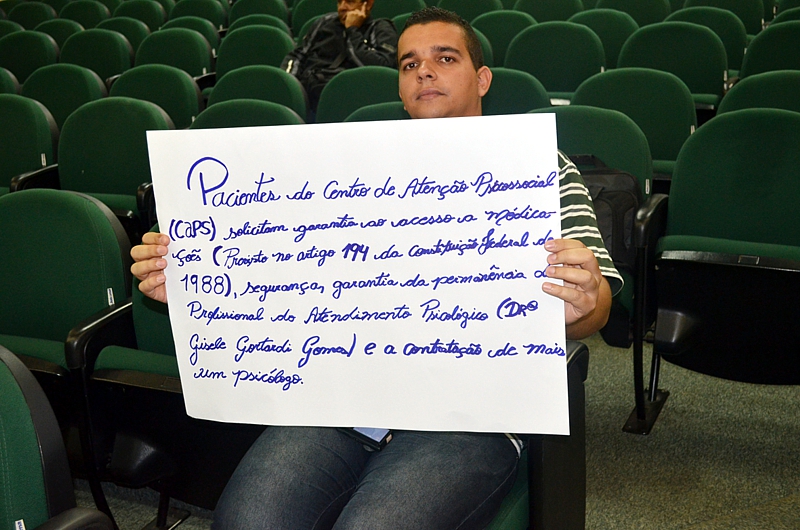 Pacientes do Centro de Atenção Psicossocial
(CAPS) solicitam garantia ao acesso a médica-
ções (Previsto no artigo 194 da Constituição federal de
1988), segurança, garantia da permanência do
Profissional do Atendimento Psicológico (DRª
Gisele Gomes) e a contratação de mais
um psicólogo.